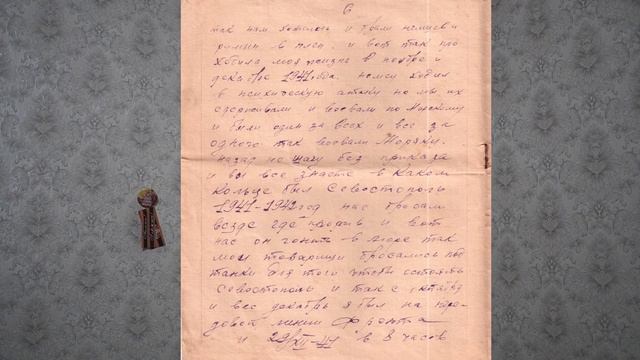 6
так нам хотелось и брали немцев и
румын в плен. и вот так про
ходила моя жизнь в ноябре и
декабре 1941 года. немец ходил
в психическую атаку но мы их
сдерживали и воевали по Морскому
и были один за всех и все за
одного так воевали Моряки.
назад не шагу без приказа
и вы все знаете в каком
кольце был Севостополь
1941-1942 год нас бросали
везде где прорыв и вот
нас он гонить в море так
мои товарищи бросались под
танки для того чтобы отстоять
Севостополь и так с октября
и весь декабрь я был на пере
довой линии фронта
и 29/XII-41 в 8 часов